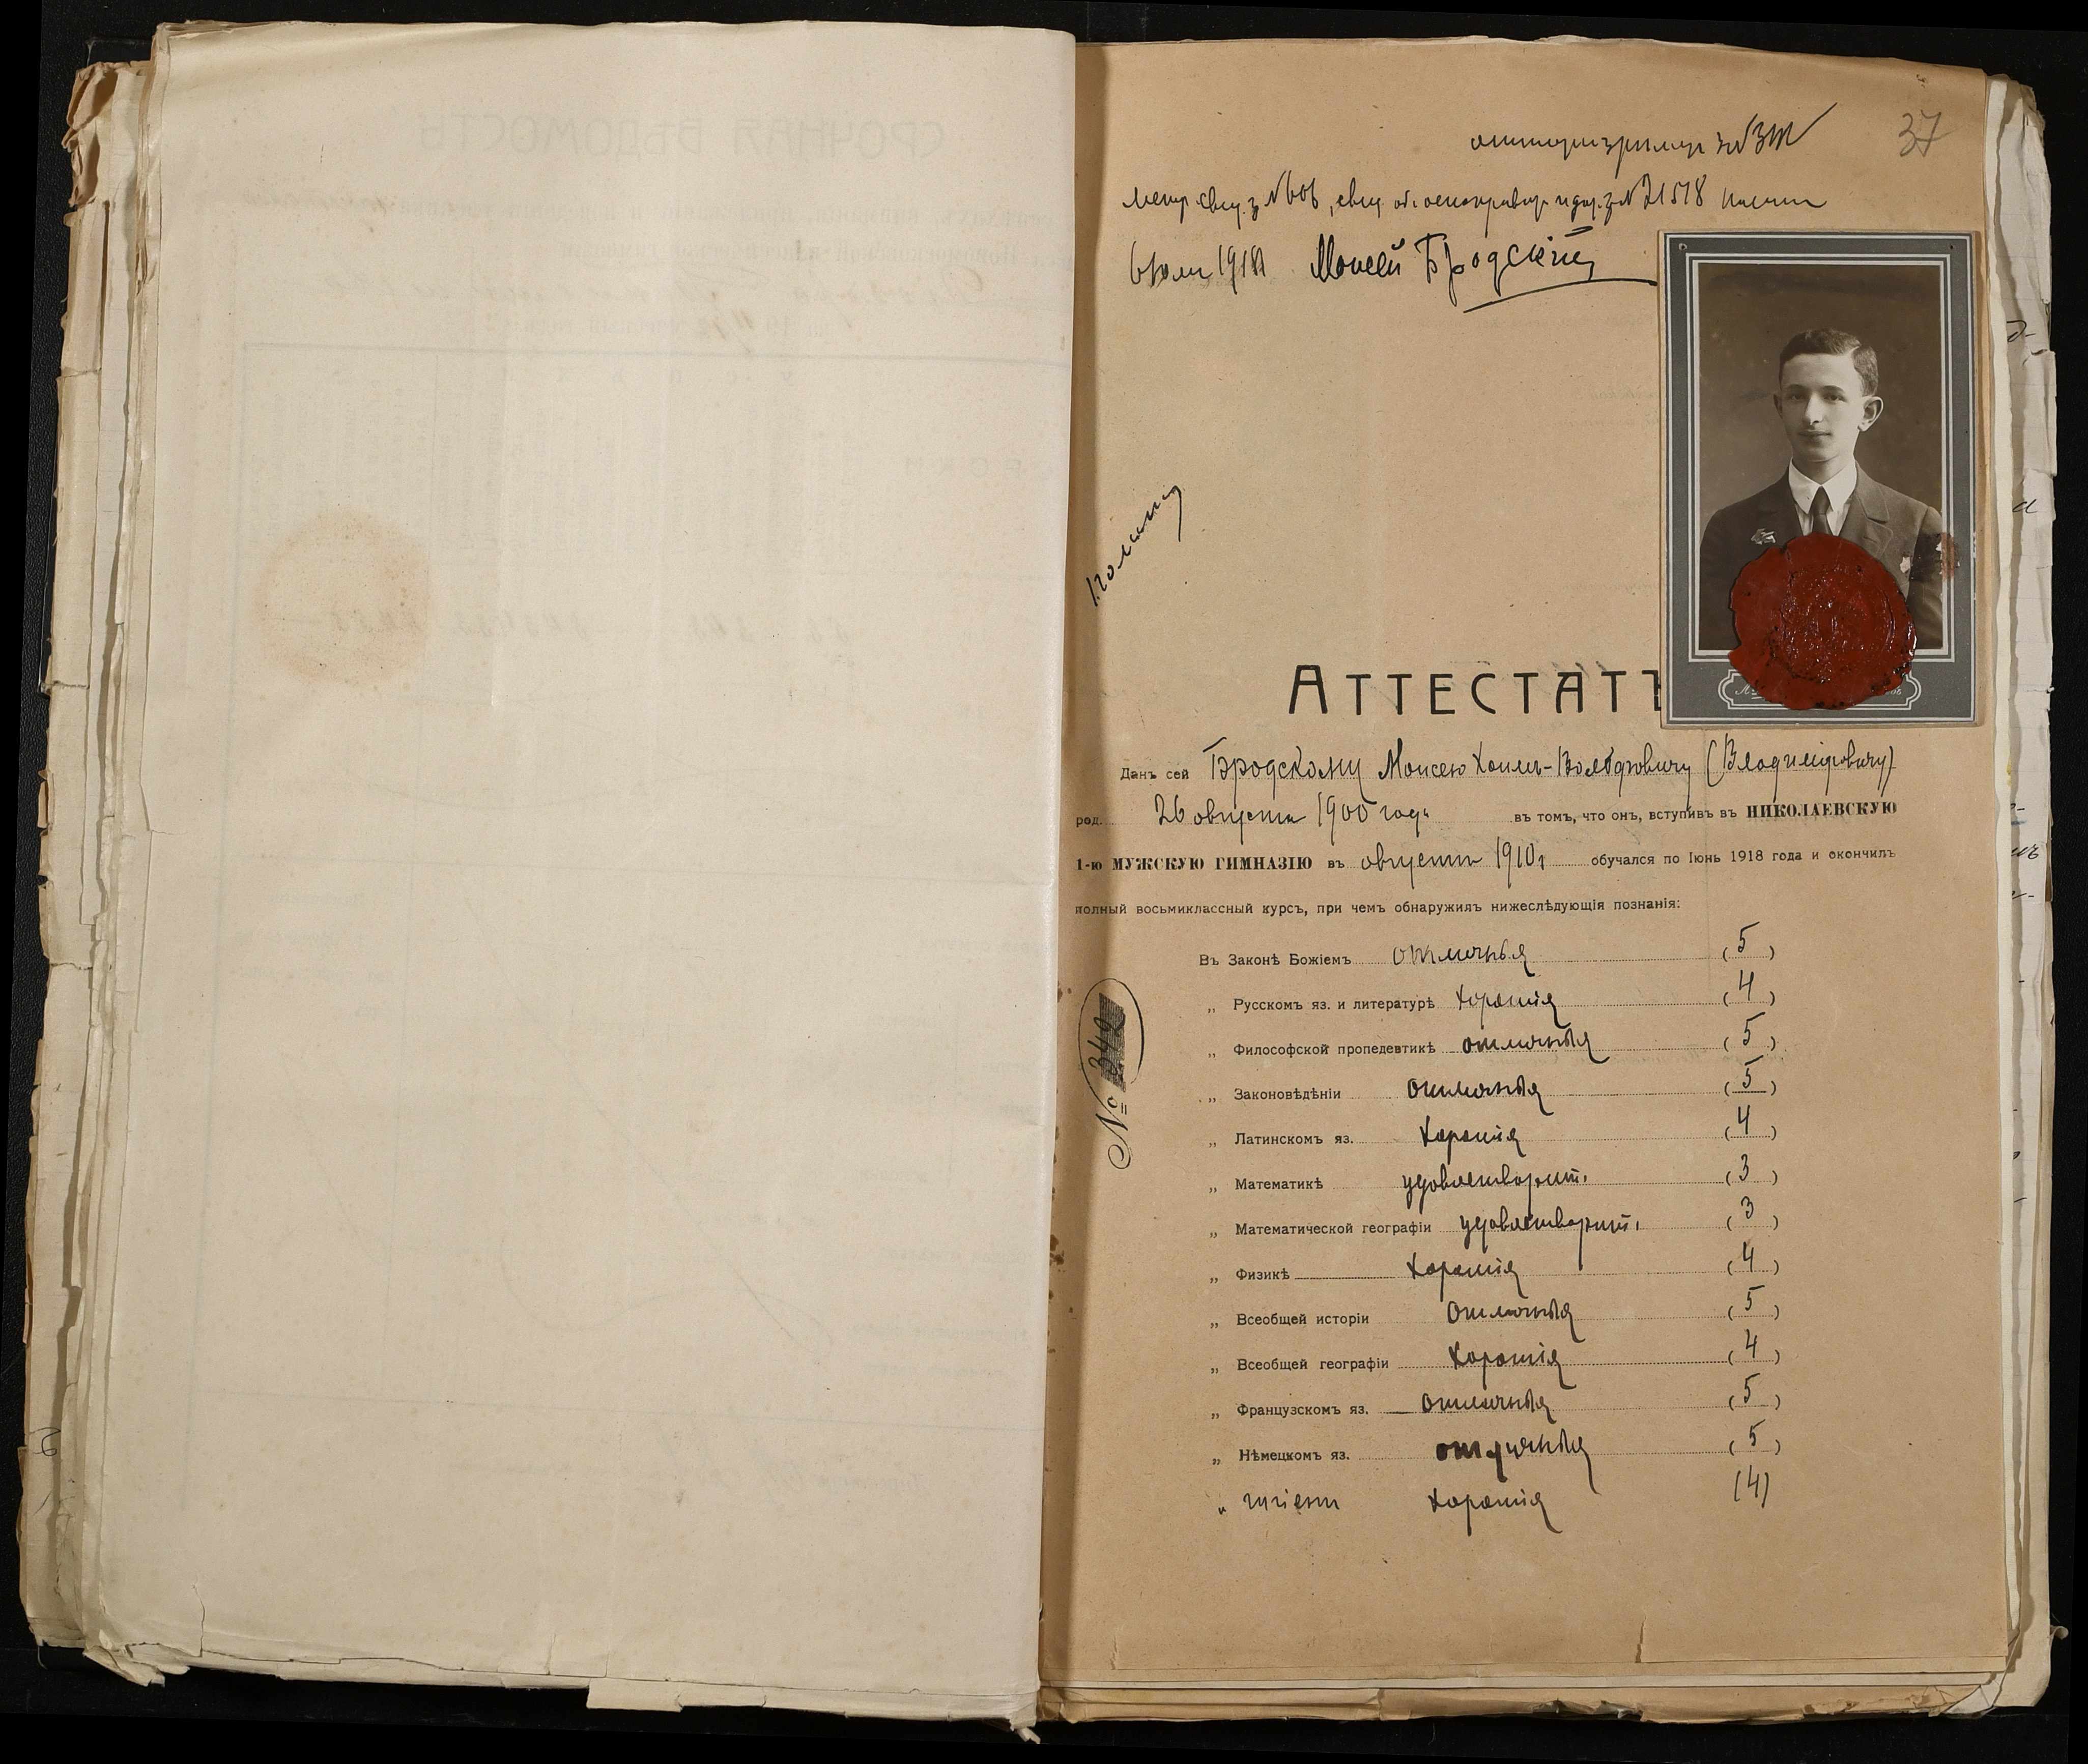 37
6 Юля 1918 Моисей Бродскій
АТТЕСТАТЪ
Данъ сей Бродскому Моисею Хаимъ-Вольфовичу (Владиміровичу)
род. 26 августа 1900 года въ томъ, что онъ, вступивъ въ НИКОЛАЕВСКУЮ
1-ю МУЖСКУЮ ГИМНАЗІЮ въ августѣ 1910 г обучался по Іюнь 1918 года и окончилъ
полный восьмиклассный курсъ, при чемъ обнаружилъ нижеслѣдующія познанія:
Въ Законѣ Божіемъ отличныя (5)
„ Русскомъ яз. и литературѣ хорошія (4)
„ Философской пропедевтикѣ отличныя (5)
„ Законовѣдѣніи отличныя (5)
„ Латинскомъ яз. хорошія (4)
„ Математикѣ удовлетворит. (3)
„ Математической географіи удовлетворит. (3)
„ Физикѣ хорошія (4)
„ Всеобщей исторіи отличныя (5)
„ Всеобщей географіи хорошія (4)
„ Французскомъ яз. отличныя (5)
„ Нѣмецкомъ яз. отличныя (5)
„ гигіенѣ хорошія (4)
№ 342